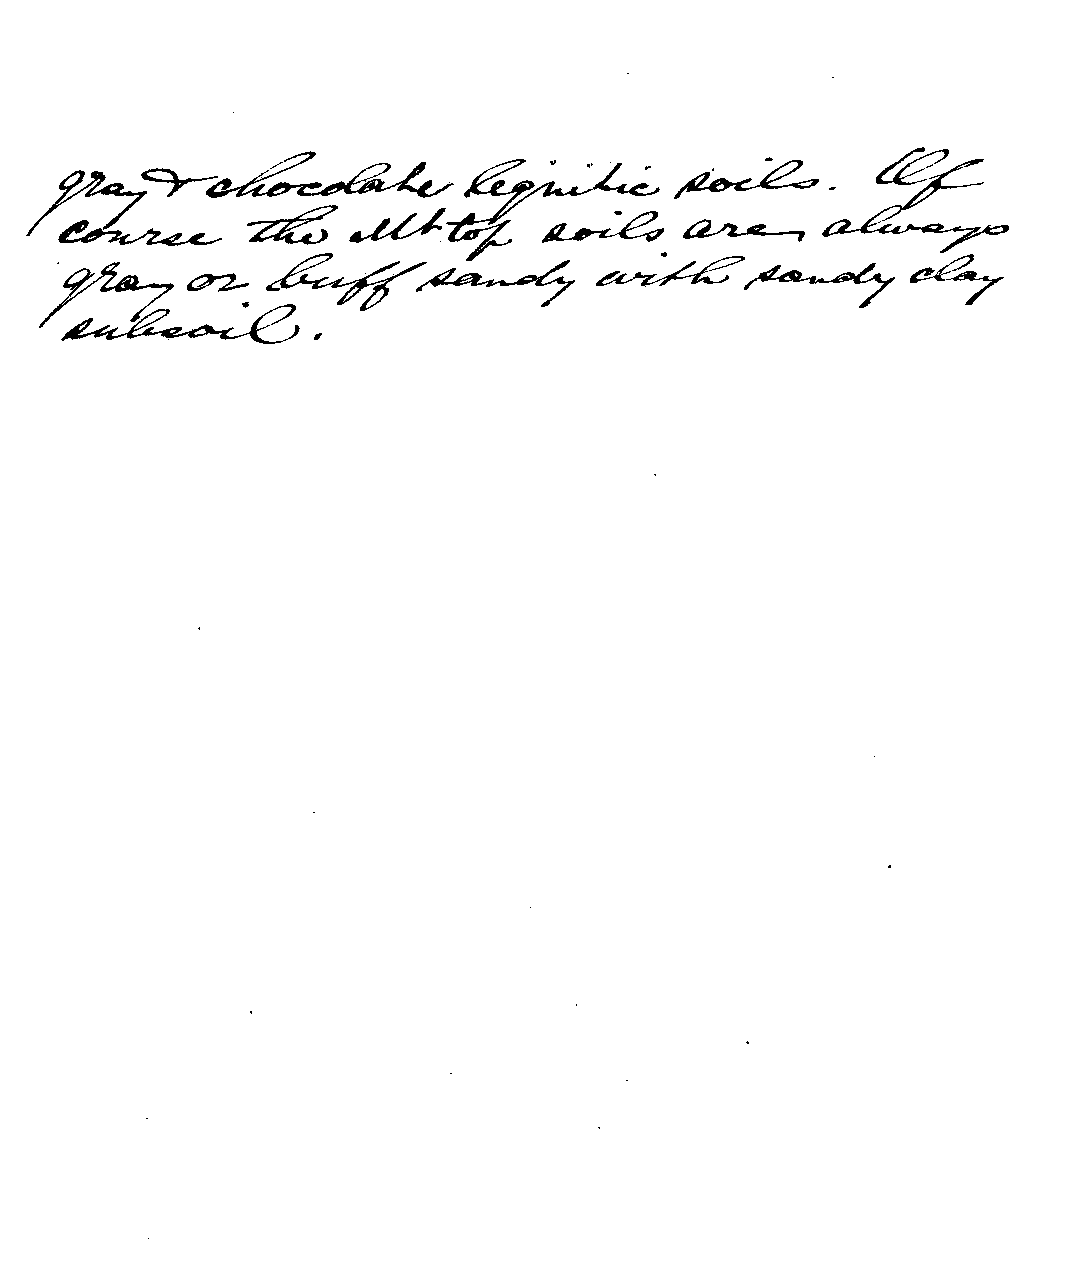 gray & chocolate lignitic soils. Of
course the Mt top soils are always
gray or buff sandy with sandy clay
subsoil.